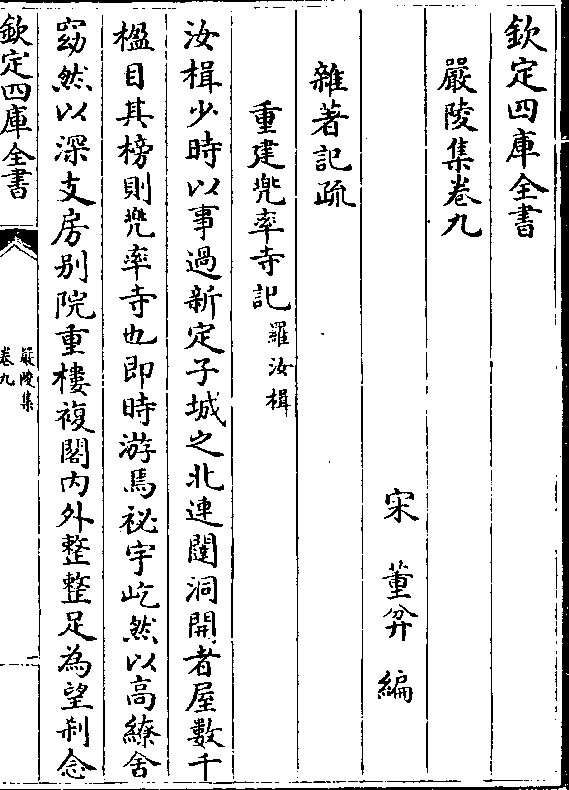 欽定四庫全書
嚴陵集卷九
宋 董弅 編
雜著記疏
重建兜率寺記 羅汝楫
汝楫少時以事過新定子城之北連闥洞開者屋數千
楹目其榜則兜率寺也即時游焉祕宇屹然以高繚舍
窈然以深支房别院重樓複閣内外整整足為望刹念
欽定四庫全書
嚴陵集
卷九